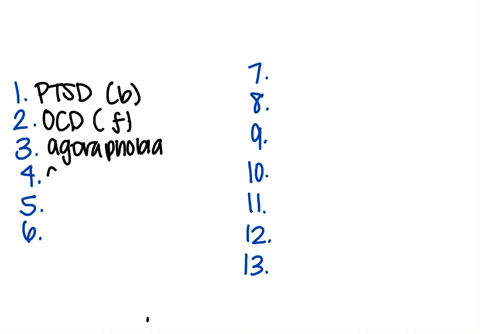 1. PTSD (b)
2. OCD (f)
3. agoraphobia
4.
5.
6.
7.
8.
9.
10.
11.
12.
13.